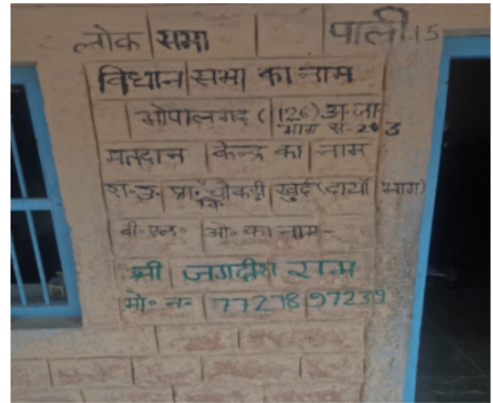 लोक सभा पाली 15
विधान सभा का नाम
भोपालगढ (126) अ.जा
भाग स. 243
मतदान केन्द्र का नाम
रा॰उ॰ प्रा॰ वि॰ चौकड़ी खुर्द (दायाँ भाग)
बी॰एल॰ ओ॰ का नाम-
श्री जगदीश राम
मो॰ न॰ 7727897239